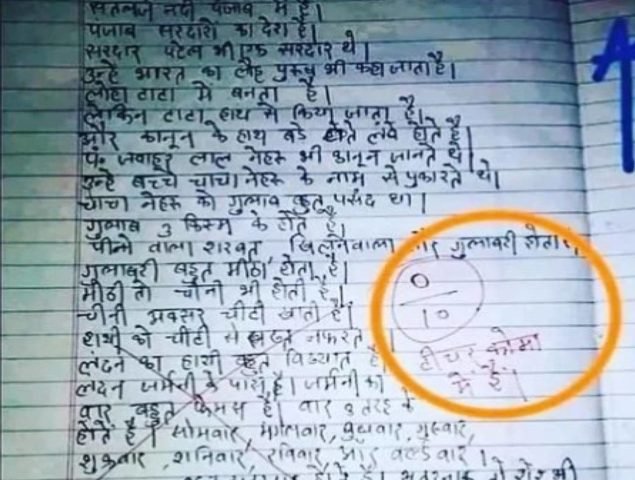 सतलज नदी पंजाब में है।
पंजाब सरदारों का देश है।
सरदार पटेल भी एक सरदार थे।
उन्हें भारत का लौह पुरुष भी कहा जाता है।
लोहा टाटा में बनता है।
लेकिन टाटा हाथ से किया जाता है।
और कानून के हाथ बडे होते लंबे होते है
पं. जवाहर लाल नेहरू भी कानून जानते थे।
उन्हे बच्चे चाचा नेहरू के नाम से पुकारते थे।
चाचा नेहरू को गुलाब बहुत पसंद था।
गुलाब 3 किस्म के होते है
पीने वाला शरबत, खिलनेवाला और गुलाबरी होता।
गुलाबरी बहुत मीठा होता है।
मीठी तो चीनी भी होती है।
चीनी अक्सर चीटी खाती है।
हाथी को चीटी से बहुत नफरत
लंदन का हाथी बहुत विख्यात है
लंदन जर्मनी के पास है। जर्मनी का
वार बहुत फेमस है। वार 8 तरह के
होते है। सोमवार, मंगलवार, बुधवार, गुरुवार,
शुक्रवार, शनिवार, रविवार और वर्ल्ड वार।
0
10
टीचर कोमा
में है।
A